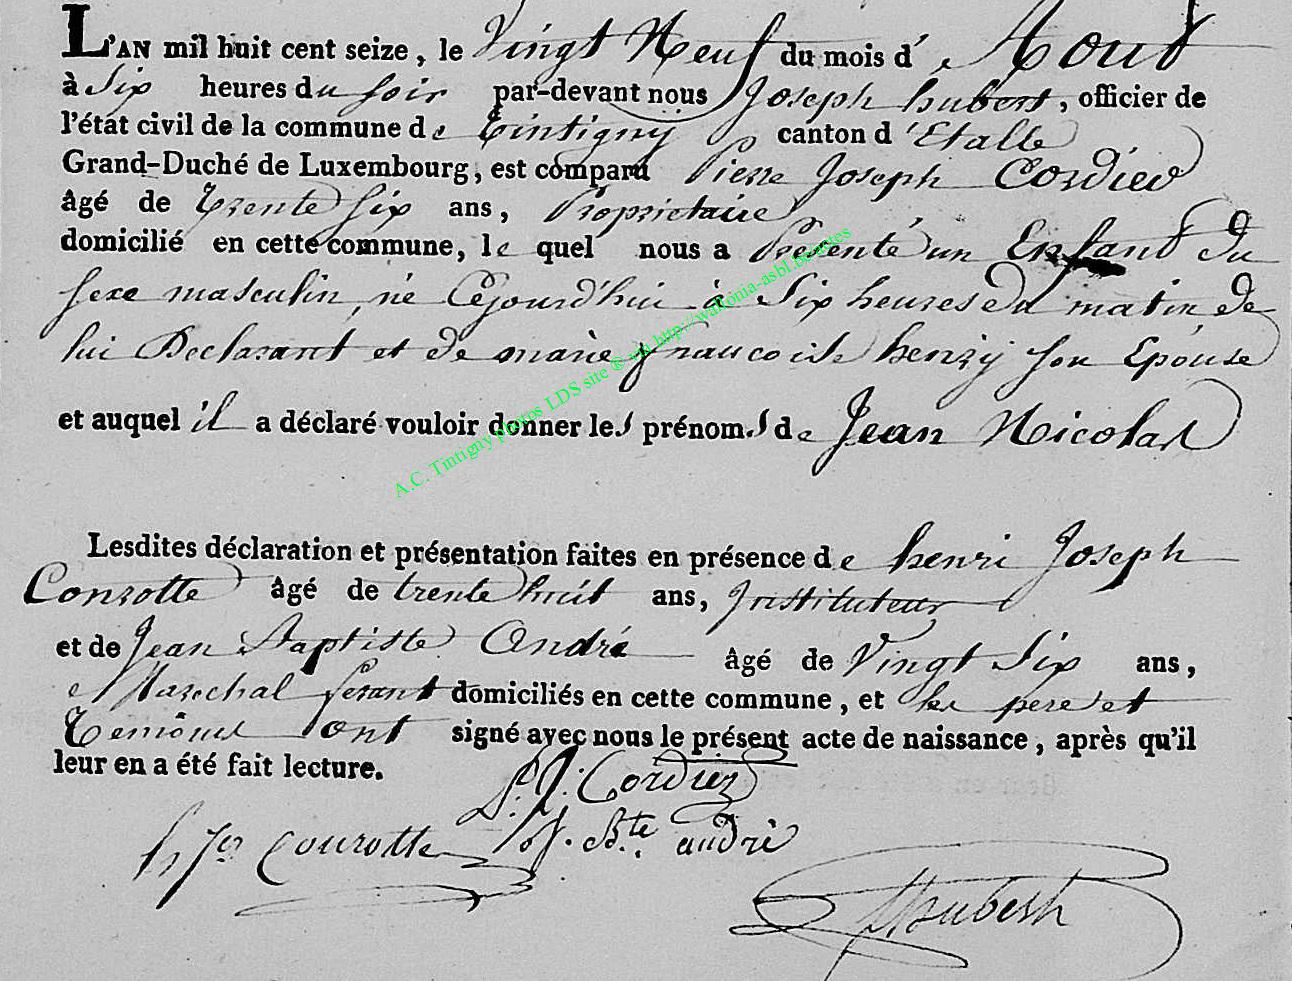 L'AN mil huit cent seize, le Vingt Neuf du mois d' Aout
à Six heures du soir par-devant nous Joseph hubert, officier de
l'état civil de la commune de Tintigny canton d'Etalle
Grand-Duché de Luxembourg, est comparu Pierre Joseph Cordier
âgé de Trente Six ans, Proprietaire
domicilié en cette commune, le quel nous a Présenté un Enfant du
sexe masculin, né Cejourd'hui à Six heures du matin de
lui Declarant et de marie francoise henry son Epouse
et auquel il a déclaré vouloir donner les prénoms de Jean Nicolas
Lesdites déclaration et présentation faites en présence de henri Joseph
Conrotte âgé de trente huit ans, Instituteur
et de Jean Baptiste André âgé de Vingt Six ans,
Marechal ferant domiciliés en cette commune, et les pere et
Temoins ont signé avec nous le présent acte de naissance, après qu'il
leur en a été fait lecture.
P. J. Cordier
h Jos Conrotte J. Bte. andré
J hubert
A.C. Tintigny photos LDS site ® via http://wallonia-asbl.be/actes